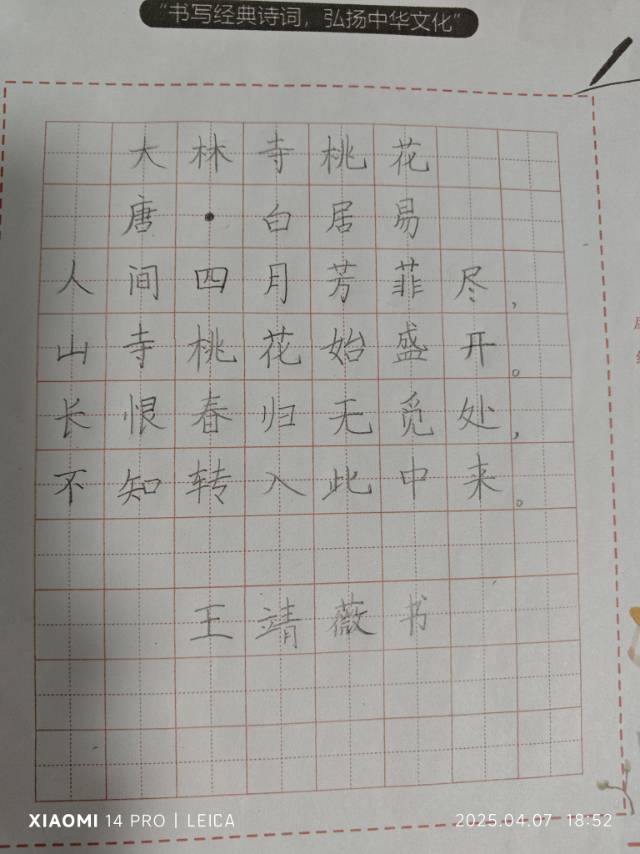 “书写经典诗词，弘扬中华文化”
大林寺桃花
唐·白居易
人间四月芳菲尽，
山寺桃花始盛开。
长恨春归无觅处，
不知转入此中来。
王靖薇书
XIAOMI 14 PRO | LEICA
2025.04.07 18:52